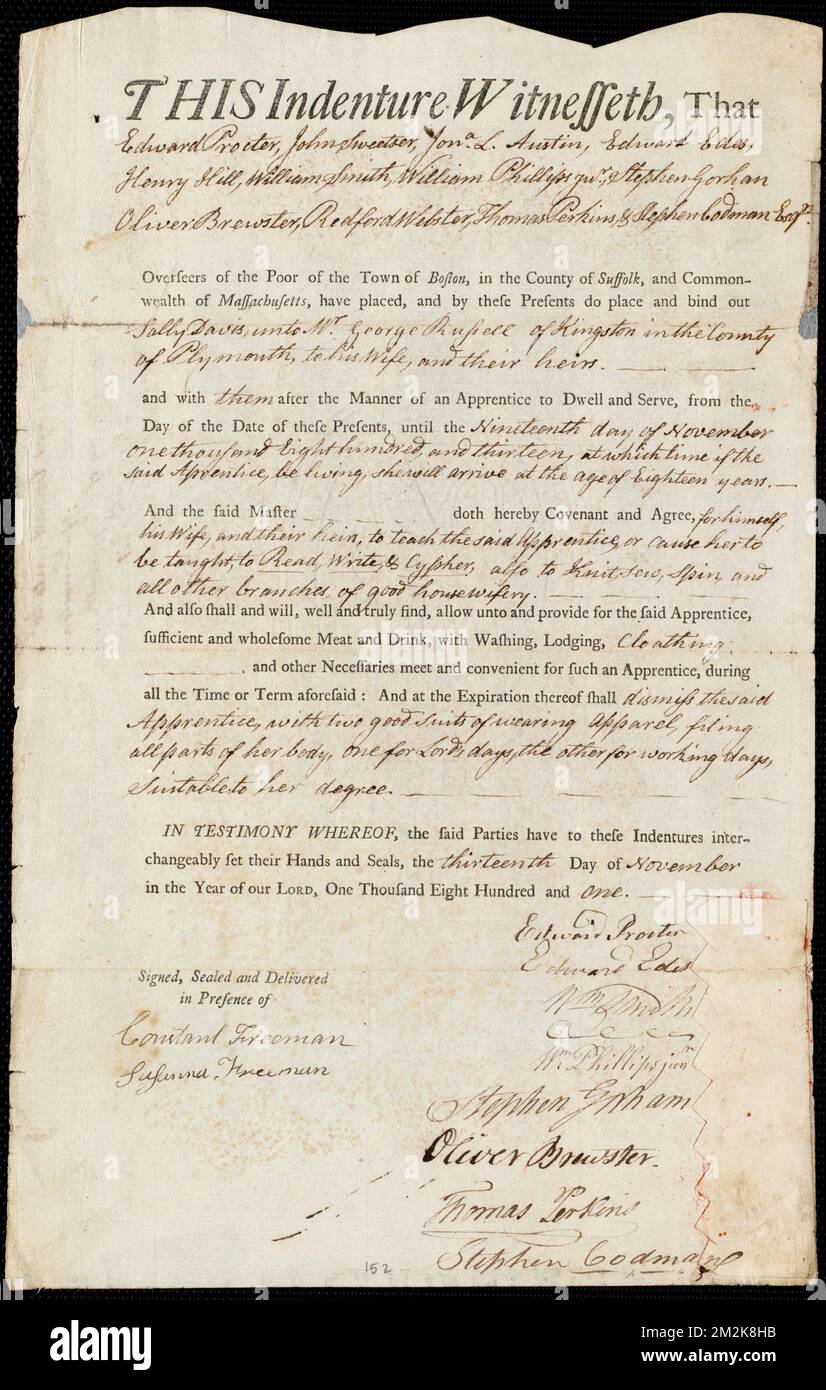 THIS Indenture Witnesseth, That
Edward Procter, John Sweetser, Jonª. L. Austin, Edward Edes,
Henry Hill, William Smith, William Phillips junr., Stephen Gorhan
Oliver Brewster, Redford Webster, Thomas Perkins, & Stephen Codman Esqrs.
Overſeers of the Poor of the Town of Boſton, in the County of Suffolk, and Common-
wealth of Maſſachuſetts, have placed, and by theſe Preſents do place and bind out
Sally Davis, unto Mr. George Russell of Kingston in the County
of Plymouth, to his Wife, and their heirs.
and with them after the Manner of an Apprentice to Dwell and Serve, from the
Day of the Date of theſe Preſents, until the Nineteenth day of November
one thousand Eight hundred, and thirteen, at which time if the
said Aprentice, be living, she will arrive at the age of Eighteen years.
And the ſaid Maſter doth hereby Covenant and Agree, for himself,
his Wife, and their heirs, to teach the said Apprentice, or cause her to
be taught, to Read, Write, & Cypher, also to Knit, sew, spin, and
all other branches of good housewifery.
And alſo ſhall and will, well and truly find, allow unto and provide for the ſaid Apprentice,
ſufficient and wholeſome Meat and Drink, with Waſhing, Lodging, Cloathing
and other Neceſſaries meet and convenient for ſuch an Apprentice, during
all the Time or Term aforeſaid : And at the Expiration thereof ſhall dismiss the said
Apprentice, with two good suits of wearing Apparel, fiting
all parts of her body, one for Lords days, the other for working days,
Suitable to her degree.
IN TESTIMONY WHEREOF, the ſaid Parties have to theſe Indentures inter-
changeably ſet their Hands and Seals, the thirteenth Day of November
in the Year of our LORD, One Thouſand Eight Hundred and one.
Edward Procter
Edward Edes
Signed, Sealed and Delivered
in Preſence of
Wm Smith
Constant Freeman
Wm Phillips junr
Susanna Freeman
Stephen Gorham
Oliver Brewster.
Thomas Perkins
Stephen Codman
152
alamy
Image ID: 2M2K8HB
www.alamy.com